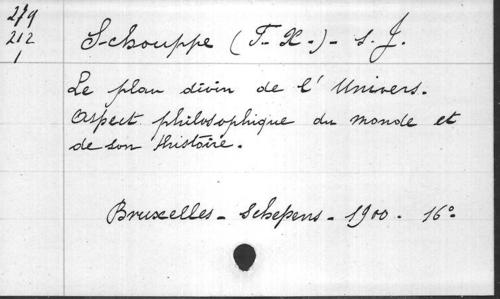 279
212
1
Schouppe (F.-X.-)- s. J.
Le plan divin de l'Univers.
Aspect philosophique du monde et
de son histoire.
Bruxelles - Schepens - 1900 - 16°